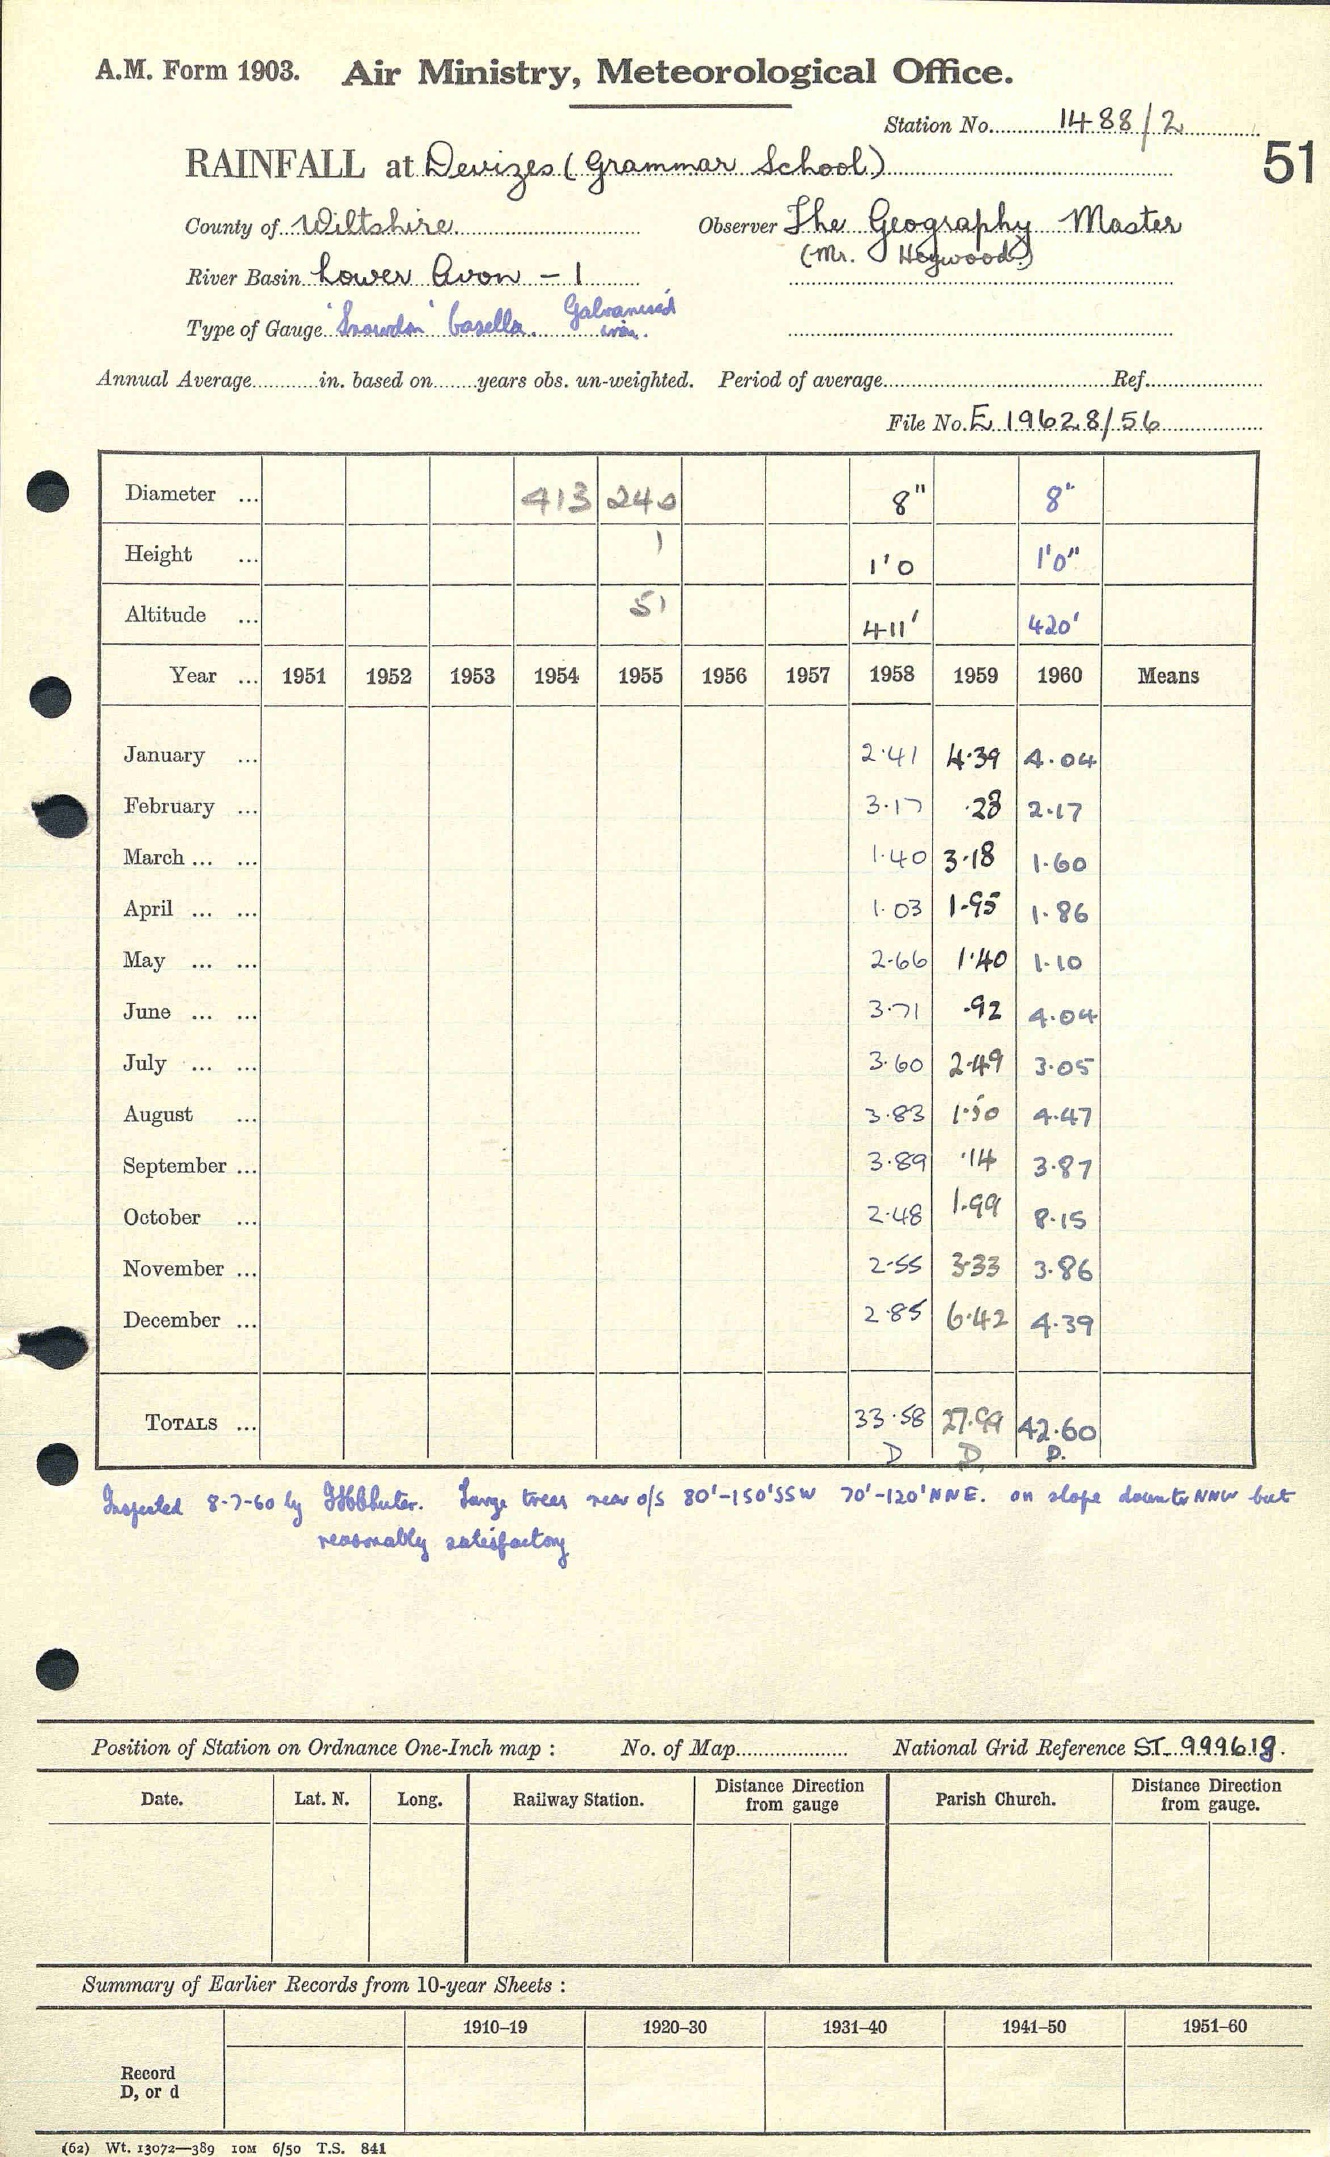 A.M. Form 1903. Air Ministry, Meteorological Office.
Station No. 1488/2
51
RAINFALL at Devizes (Grammar School)
County of Wiltshire Observer The Geography Master
(Mr. Heywood)
River Basin Lower Avon - 1
Type of Gauge 'Snowdon' casella. Galvanised iron.
Annual Average in. based on years obs. un-weighted. Period of average Ref.
File No. E 19628/56
Diameter ... 413 240 8" 8"
Height ... 1 1'0 1'0"
Altitude ... 51 411' 420'
Year ... 1951 1952 1953 1954 1955 1956 1957 1958 1959 1960 Means
January ... 2.41 4.39 4.04
February ... 3.17 .28 2.17
March ... ... 1.40 3.18 1.60
April ... ... 1.03 1.95 1.86
May ... ... 2.66 1.40 1.10
June ... ... 3.71 .92 4.04
July ... ... 3.60 2.49 3.05
August ... 3.83 1.50 4.47
September ... 3.89 .14 3.87
October ... 2.48 1.99 8.15
November ... 2.55 3.33 3.86
December ... 2.85 6.42 4.39
TOTALS ... 33.58 27.99 42.60
D D. D.
Inspected 8-7-60 by Large trees near o/s 80'-150'SSW 70'-120'NNE. on slope down to NNW but
reasonably satisfactory
Position of Station on Ordnance One-Inch map : No. of Map National Grid Reference ST 999619.
Date. Lat. N. Long. Railway Station. Distance Direction from gauge Parish Church. Distance Direction from gauge.
Summary of Earlier Records from 10-year Sheets :
1910–19 1920–30 1931–40 1941–50 1951–60
Record
D, or d
(62) Wt. 13072—389 10M 6/50 T.S. 841